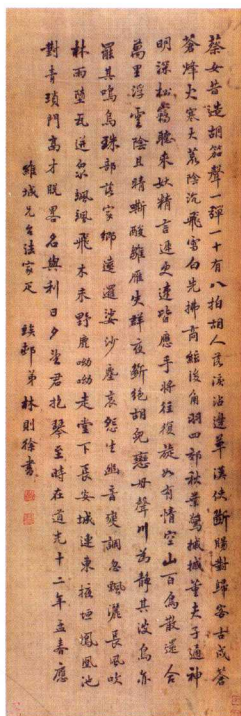 蔡女昔造胡笳聲一彈一十有八拍胡人落淚沾邊草漢使斷腸對歸客古戍蒼
蒼烽火寒大荒陰沈飛雪白先拂商絃後角羽四郊秋葉驚摵摵董夫子通神
明深松竊聽來妖精言遲更速皆應手將往復旋如有情空山百鳥散還合
萬里浮雲陰且晴嘶酸雛雁失群夜斷絕胡兒戀母聲川為靜其波鳥亦
罷其鳴烏珠部落家鄉遠邏娑沙塵哀怨生幽音變調忽飄灑長風吹
林雨墮瓦迸泉颯颯飛木末野鹿呦呦走堂下長安城連東掖垣鳳凰池
對青瑣門高才脫畧名與利日夕望君抱琴至時在道光十二年孟春應
維城先台法家正
竢邨弟林則徐書